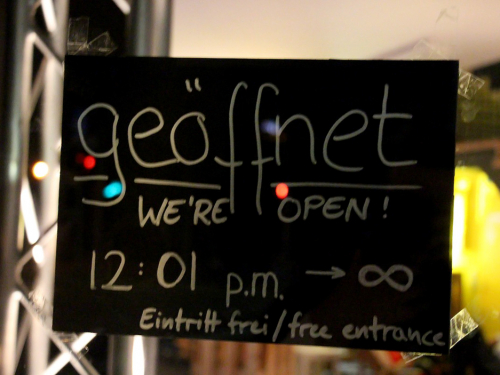 geöffnet
WE'RE OPEN!
12:01 p.m. → ∞
Eintritt frei/free entrance